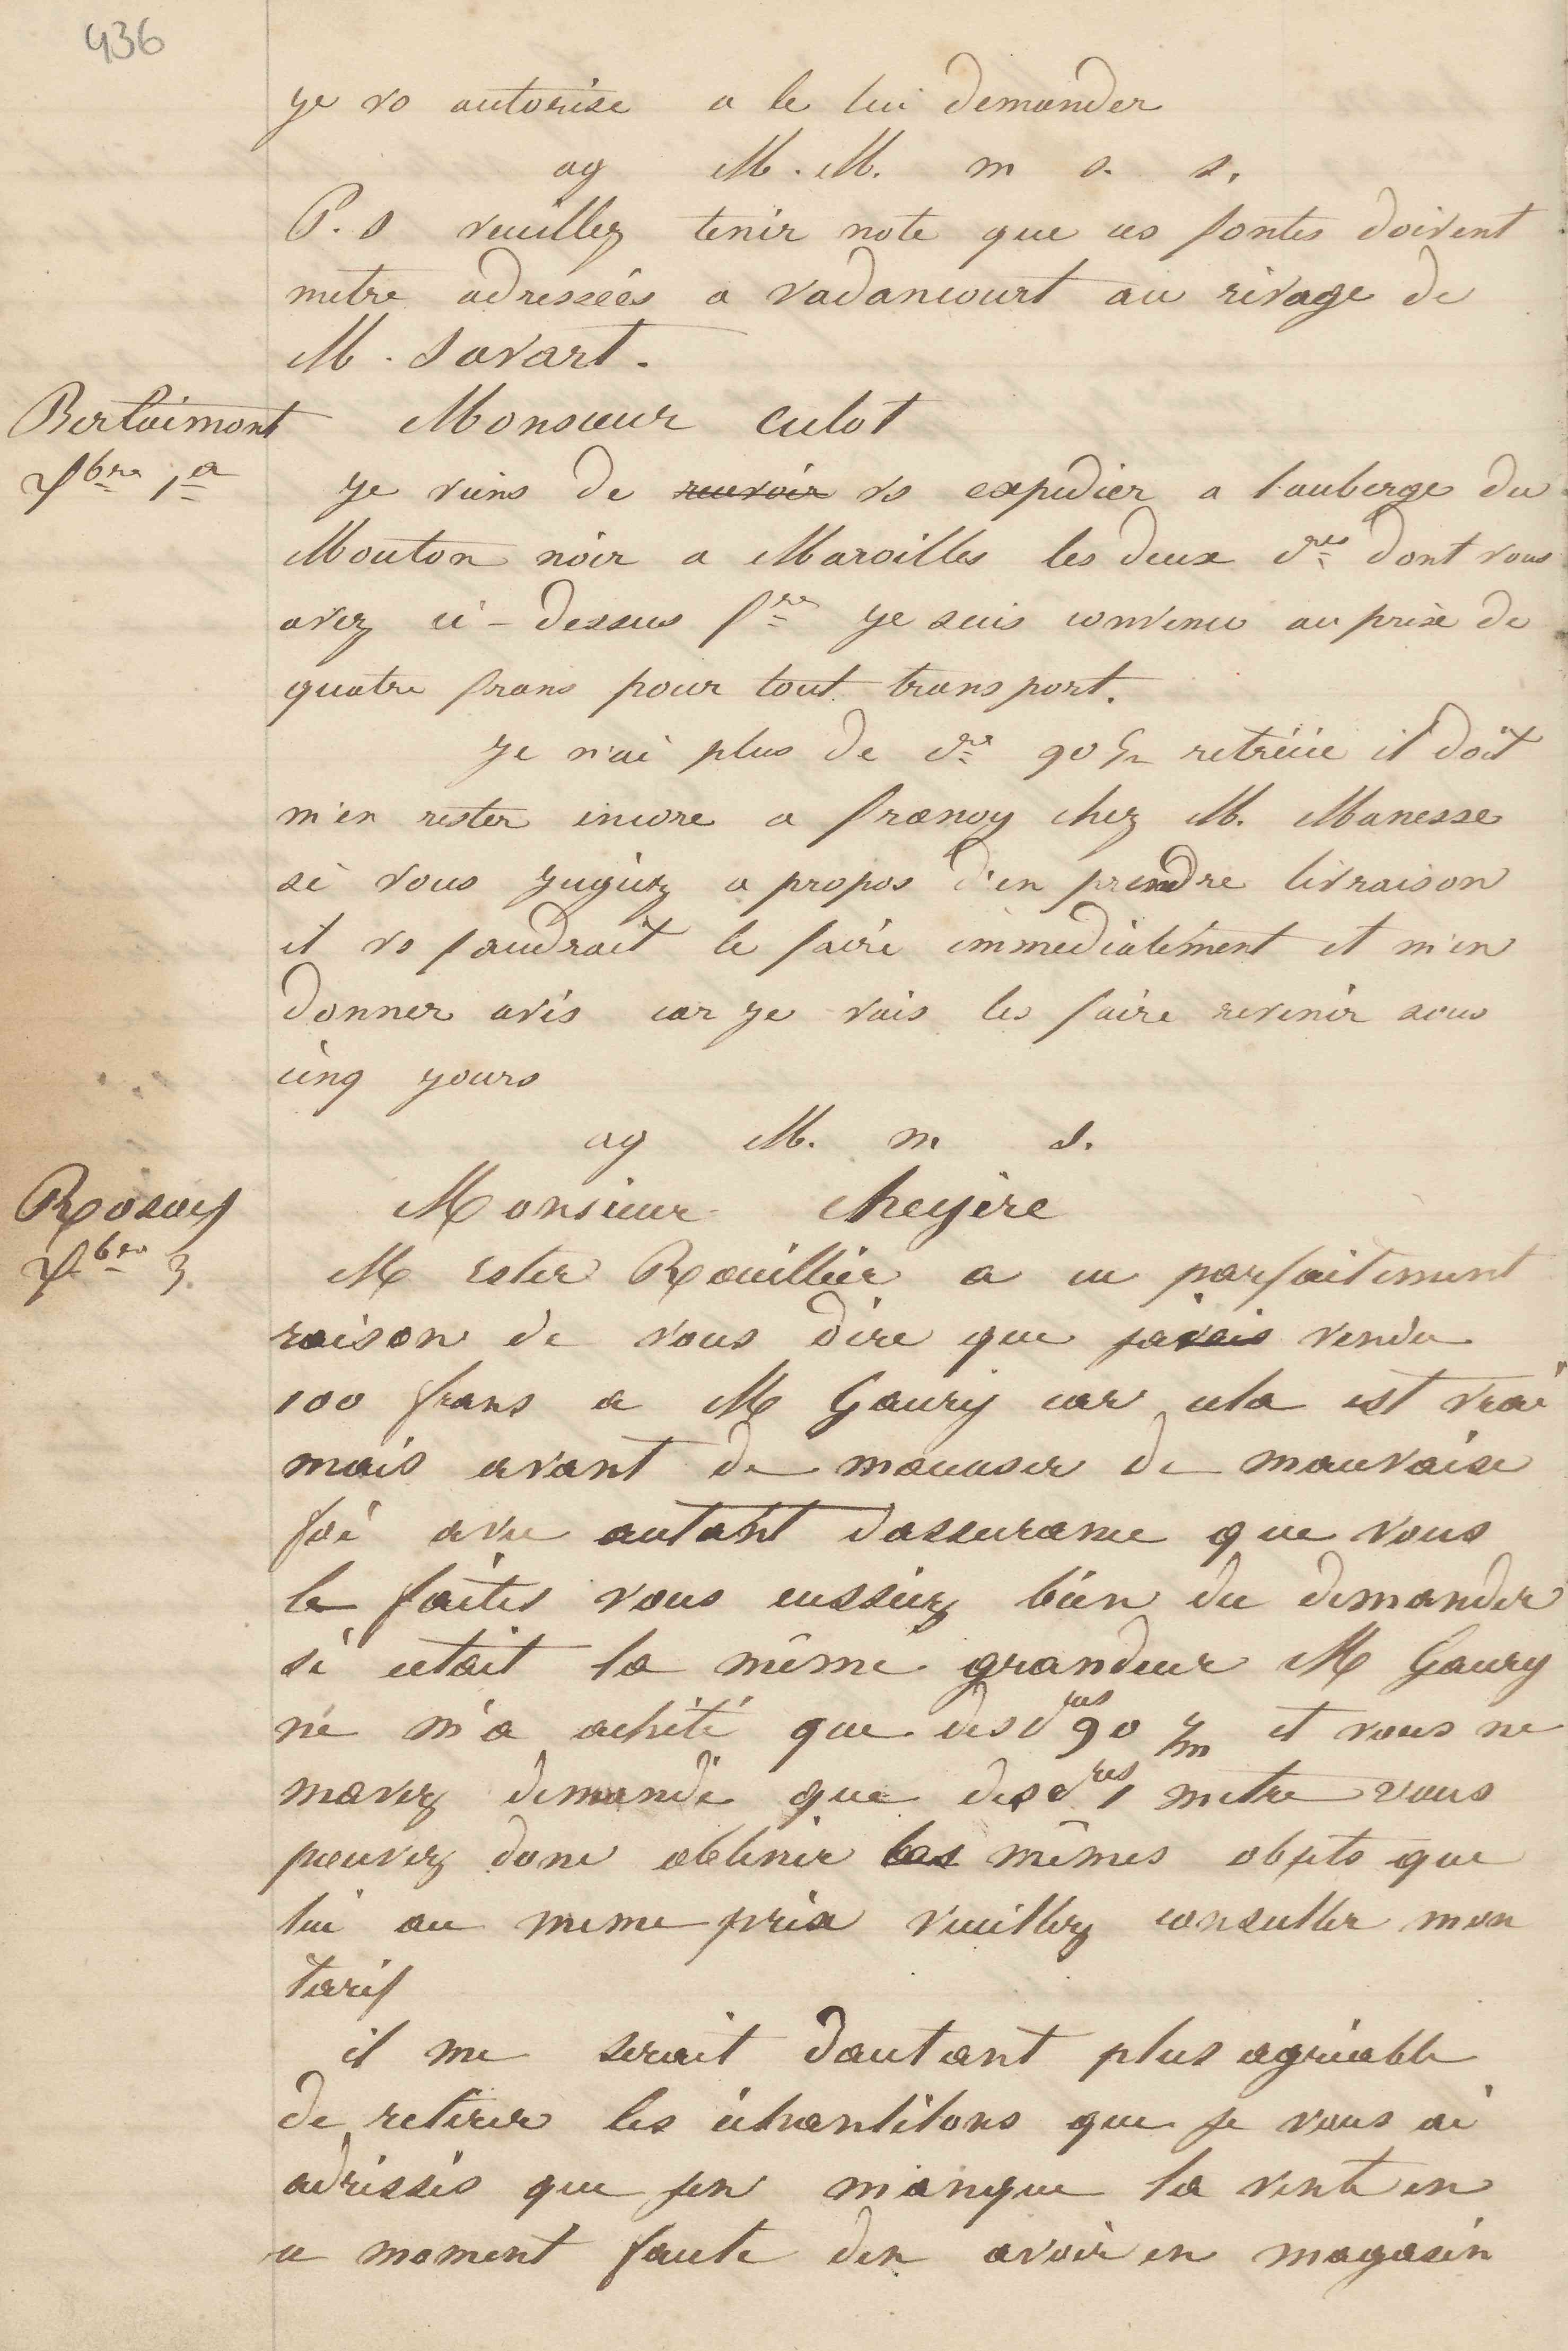 436
je vs autorise a le lui demander
ag M. M. m s. s.
P. S veuillez tenir note que ces fontes doivent
metre adressées a vadancourt au rivage de
M. Savart.
Berlaimont
7bre 1er
Monsieur Culot
je viens de recevoir vs expedier a l'auberge du
Mouton noir a Maroilles les deux dres dont vous
avez ci-dessus fre je suis convenu au prix de
quatre frans pour tout transport.
je n'ai plus de dre 90 c/m retréüe il doit
m'en rester encore a fraenoy chez M. Manesse
si vous jugiez a propos d'en prendre livraison
il vs faudrait le faire immediatement et m'en
donner avis car je vais les faire revenir sous
cinq jours
ag M. m s.
Rosoy
7bre 3.
Monsieur cheyère
M ester Rouillier a eu parfaitement
raison de vous dire que javais vendu
100 frans a M Gaury car cela est vrai
mais avant de maccuser de mauvaise
foi avec autant dassurance que vous
le faites vous eussiez bien du demander
si cetait la même grandeur M Gaury
ne m'a acheté que des dres 90 c/m et vous ne
mavez demandé que des dres 1 metre vous
pouvez donc obtenir les mêmes objets que
lui au meme prix veuillez consulter mon
tarif
il me serait dautant plus agréable
de retirer les échantilons que je vous ai
adressés que jen manque la vente en
ce moment faute den avoir en magasin